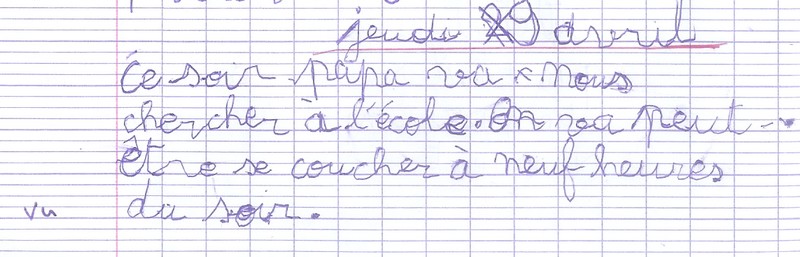 jeudi 29 avril
Ce soir papa va nous
chercher à l'école. On va peut-
être se coucher à neuf heures
vu du soir.